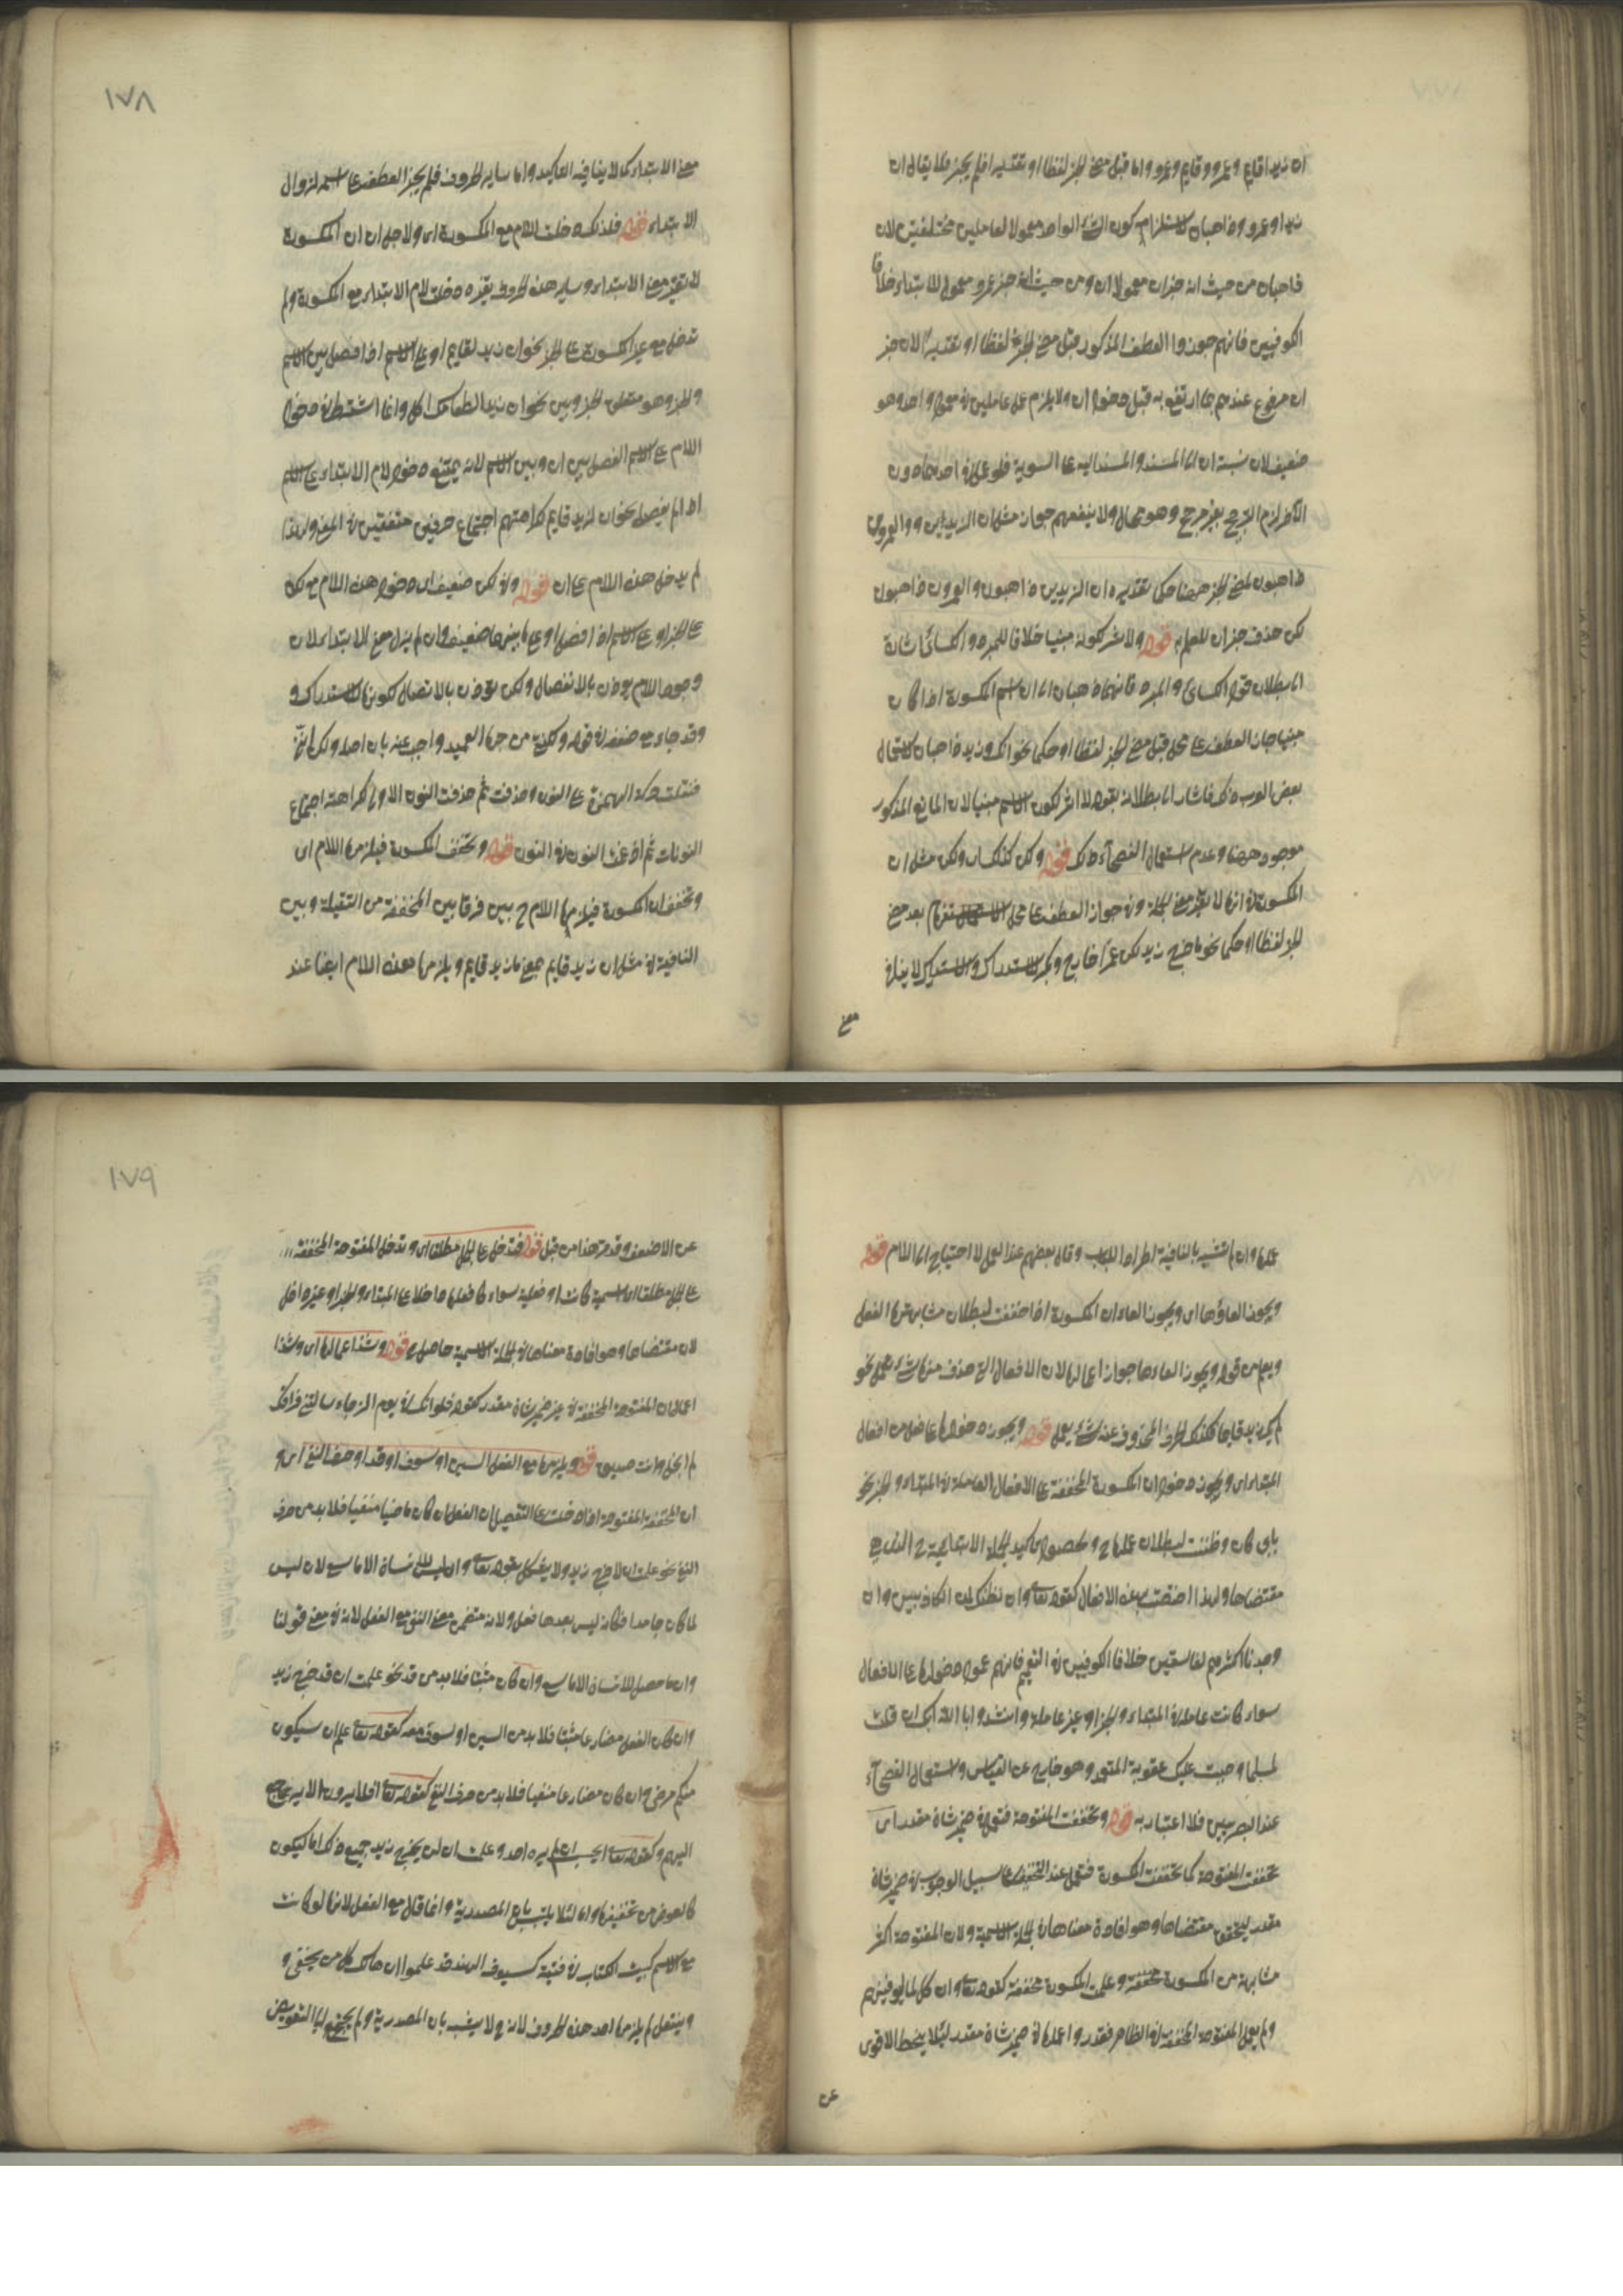 ان زيدا قايم وعمرو وقايم وعمرو واما قبل مضى الخبر لفظا او تقديرا فلم يجز فلا يقال ان
زيدا وعمرو ذاهبان لاستلزام كون الشئ الواحد معمولا لعاملين مختلفين لان
ذاهبان من حيث انه خبر ان معمول ان ومن حيث انه خبر عمرو معمول للابتداء خلافا
الكوفيين فانهم جوزوا العطف المذكور قبل مضى الخبر لفظا او تقديرا لان خبر
ان مرفوع عندهم بما ارتفع به قبل دخول ان ولا يلزم عمل عاملين في معمول واحد وهو
ضعيف لان نسبة ان الى المسند والمسند اليه على السوية فلو عمل في احدهما دون
الآخر لزم الترجيح بغير مرجح وهو محال ولا ينفعهم جواز مثل ان الزيدين والعمرون
ذاهبون لمضى الخبر ههنا حكما تقديره ان الزيدين ذاهبون والعمرون ذاهبون
لكن حذف خبر ان للعلم به قوله ولا اثر لكونه مبنيا خلافا للمبرد والكسائى اشارة
الى بطلان قول الكسائى والمبرد فانهما ذهبا الى ان اسم المكسورة اذا كان
مبنيا جاز العطف على محله قبل مضى الخبر لفظا او حكما نحو انك وزيد ذاهبان لاستعمال
بعض العرب ذلك فاشار الى بطلانه بقوله لا اثر لكون الاسم مبنيا لان المانع المذكور
موجود ههنا وعدم استعمال الفصحآء ذلك قوله ولكن كذلك اى ولكن مثل ان
المكسورة في انها لا تغير معنى الجملة وفي جواز العطف على محل الاسم بعد مضى
الخبر لفظا او حكما نحو ما خرج زيد لكن عمرا خارج وبكر للاستدراك والاستدراك لا ينافي
معنى
١٧٨
معنى الابتداء كما لا ينافيه التاكيد واما ساير الحروف فلم يجز العطف على اسمه لزوال
الابتداء قوله فلذلك دخلت اللام مع المكسورة اى ولاجل ان ان المكسورة
لا تغير معنى الابتداء وساير هذه الحروف يغيره دخلت لام الابتداء مع المكسورة ولم
تدخل مع غير المكسورة على الخبر نحو ان زيد لقايم او على الاسم اذا فصل بين الاسم
والخبر وهو متعلق الخبر وبين نحو ان زيدا لطعامك اكل وانما اشترط في دخول
اللام على الاسم الفصل بين ان وبين الاسم لانه يمتنع دخول لام الابتداء على الاسم
اذا لم يفصل نحو ان لزيد قايم كراهتهم اجتماع حرفين متفقين في المعنى ولهذا
لم يدخل هذه اللام على ان قوله وفي لكن ضعيف اى دخول هذه اللام مع لكن
على الخبر او على الاسم اذا فصل او على ما بينهما ضعيف وان لم يزل معنى الابتداء لان
وجود اللام يوذن بالانفصال ولكن توذن بالاتصال لكونها للاستدراك و
وقد جاء مع ضعفه في قوله ولكنني من حبها لعميد واجيب عنه بان اصله ولكن انني
فنقلت حركة الهمزة على النون وحذفت ثم حذفت النون الاولى كراهة اجتماع
النونات ثم ادغمت النون في النون قوله وتخفف المكسورة فيلزمها اللام اى
وتخفف ان المكسورة فيلزمها اللام ح بين فرقا بين المخففة من الثقيلة وبين
النافية في مثل ان زيد قايم بمعنى ما زيد قايم ويلزمها معه هذه اللام ايضا عند
عملها وان لم تشبه بالنافية اطرادا للباب وقال بعضهم عند العمل لا احتياج الى اللام قوله
ويجوز الغاؤها اى ويجوز الغاء ان المكسورة اذا خففت لبطلان مشابهتها الفعل
ويعلم من قوله ويجوز الغاءها جواز اعمالها لان الافعال التى حذف منها شئ تعمل نحو
لم يك زيد قايما فكذلك الحرف المحذوف عنه شئ يعمل قوله ويجوز دخولها على فعل من افعال
المبتداء اى ويجوز دخول ان المكسورة المخففة على الافعال العاملة في المبتداء والخبر نحو
باب كان وظننت لبطلان عملها ح ولحصول تاكيد الجملة الابتدائية ح الذى هو
مقتضاها ولهذا اختصت بهذه الافعال كقوله تعالى وان نظنك لمن الكاذبين وان
وجدنا اكثرهم لفاسقين خلافا الكوفيين في التعميم فانهم عموا دخولها على الافعال
سواء كانت عاملة في المبتداء والخبر او غير عاملة وانشدوا بالله ربك ان قتلت
لمسلما وجبت عليك عقوبة المتعمد وهو خارج عن القياس واستعمال الفصحآء
عند البصريين فلا اعتبار به قوله وتخفف المفتوحة فتعمل في ضمير شان مقدر اى
تخفف المفتوحة كما تخفف المكسورة فتعمل عند التخفيف على سبيل الوجوب في ضمير شان
مقدر ليتحقق مقتضاها وهو افادة معناها في الجملة الاسمية ولان المفتوحة اكثر
مشابهة من المكسورة مخففة وعملت المكسورة مخففة كقوله تعالى وان كلا لما ليوفينهم
ولم يعمل المفتوحة المخففة في الظاهر فقدروا عملها في ضمير شان مقدر لئلا ينحط الاقوى
عن
١٧٩
عن الاضعف وقد مر هذا من قبل قوله فتدخل على الجمل مطلقا اى وتدخل المفتوحة المخففة
على الجمل مطلقا اى اسمية كانت او فعلية سواء كان فعلها داخلا على المبتداء والخبر او غير داخل
لان مقتضاها وهو افادة معناها في الجملة الاسمية حاصل ح قوله وشذ اعمالها اى وشذ
اعمال ان المفتوحة المخففة في غير ضمير شان مقدر كقوله فلو انك في يوم الرخاء سالتني فراقك
لم ابخل وانت صديق قوله ويلزمها مع الفعل السين او سوف او قد او حرف النفى اى و
ان المخففة المفتوحة اذا دخلت على التفصيل ان الفعل ان كان ماضيا منفيا فلا بد من حرف
النفى نحو علمت ان لا خرج زيد ولا يشكل بقوله تعالى وان ليس للانسان الا ما سعى لان ليس
لما كان جامدا فكانه ليس بعدها فعل ولانه متضمن معنى النفى مع الفعل لانه في معنى قولنا
وان ما حصل للانسان الا ما سعى وان كان مثبتا فلا بد من قد نحو علمت ان قد خرج زيد
وان كان الفعل مضارعا مثبتا فلا بد من السين او سوف معه كقوله تعالى علم ان سيكون
منكم مرضى وان كان مضارعا منفيا فلا بد من حرف النفى كقوله تعالى افلا يرون الا يرجع
اليهم وكقوله تعالى ايحسب ان لم يره احد وعلمت ان لن يخرج زيد جميع ذلك اما ليكون
كالعوض من تخفيفها واما لئلا يلتبس بان المصدرية وانما قال مع الفعل لانها لو كانت
مع الاسم كبيت الكتاب في فتية كسيوف الهند قد علموا ان هالك كل من يحفى و
وينتعل لم يلزمها احد هذه الحروف لانه ح لا يشبه بان المصدرية ولم يحتج الى التعويض